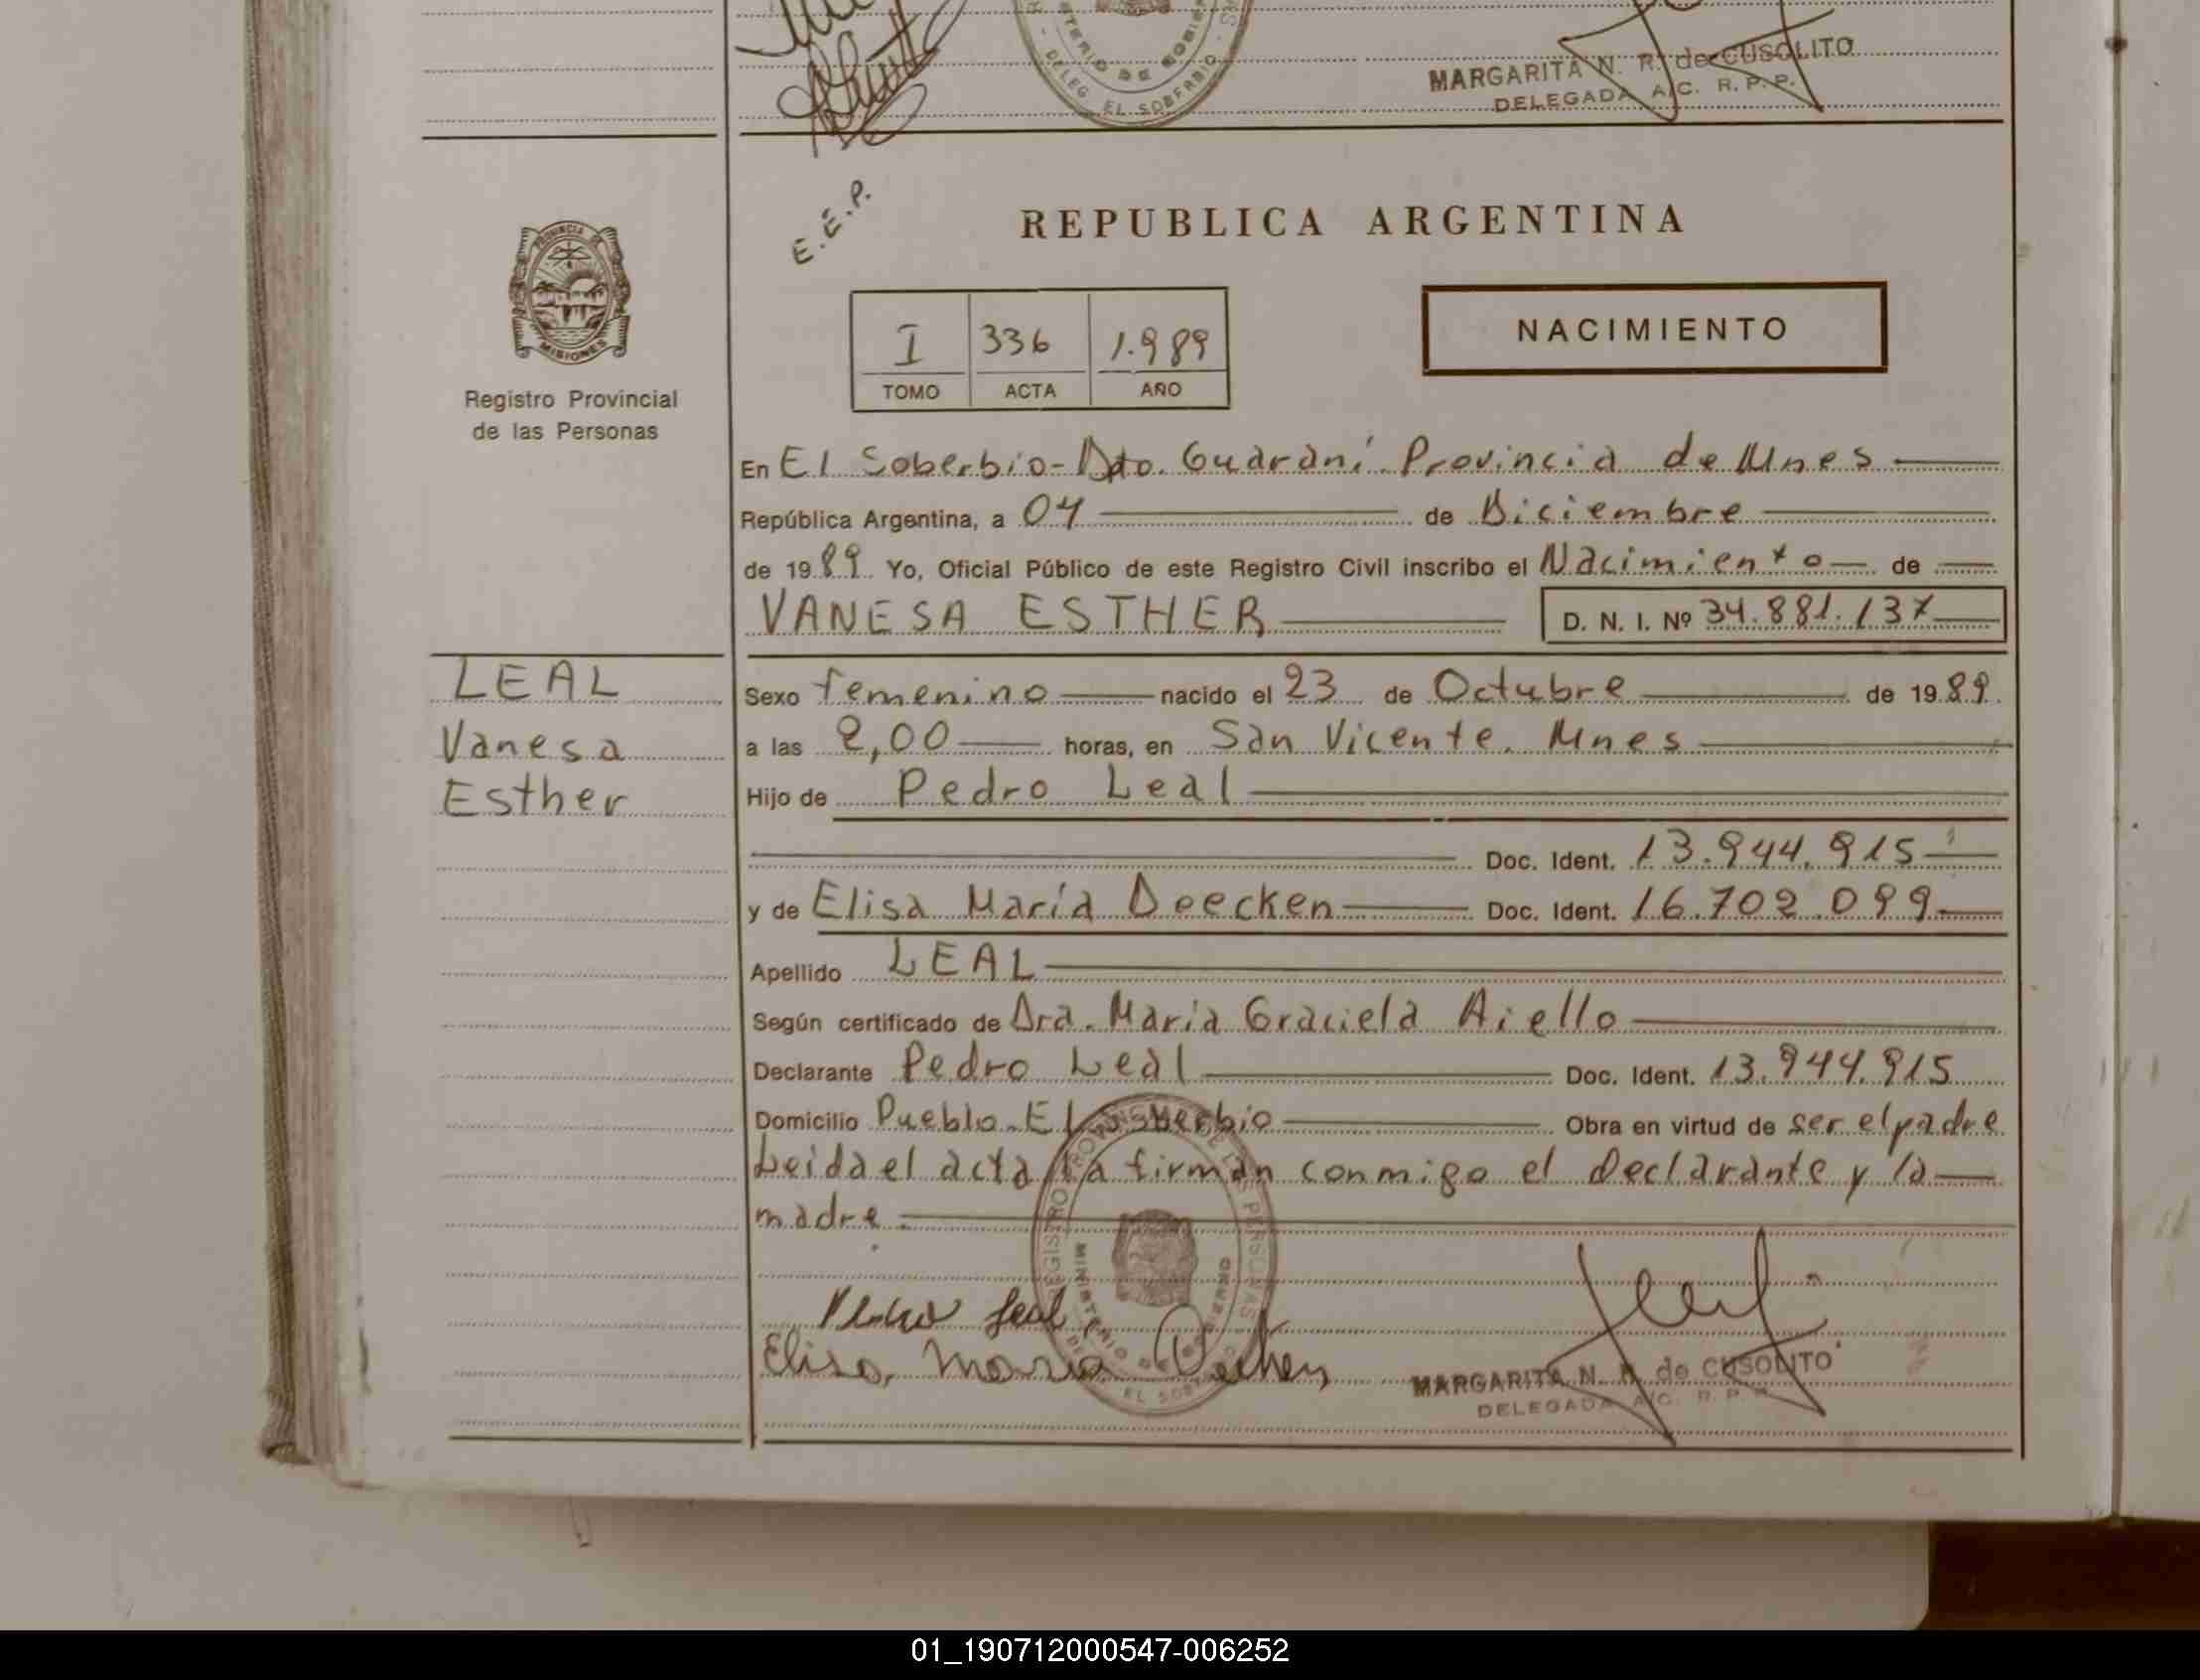 MINISTERIO DE GOBIERNO
DELEG. EL SOBERBIO
MARGARITA N. R. de CUSOLITO
DELEGADA A/C. R. P. P.
E.E.P.
REPUBLICA ARGENTINA
PROVINCIA DE MISIONES
I 336 1.989
TOMO ACTA AÑO
NACIMIENTO
Registro Provincial
de las Personas
En El Soberbio - Dto. Guaraní Provincia de Mnes
República Argentina, a 04 de Diciembre
de 1989 Yo, Oficial Público de este Registro Civil inscribo el Nacimiento de
VANESA ESTHER D. N. I. Nº 34.881.137
LEAL
Vanesa
Esther
Sexo femenino nacido el 23 de Octubre de 1989.
a las 2,00 horas, en San Vicente. Mnes
Hijo de Pedro Leal
Doc. Ident. 13.944.915
y de Elisa María Deecken Doc. Ident. 16.702.099
Apellido LEAL
Según certificado de Dra. María Graciela Aiello
Declarante Pedro Leal Doc. Ident. 13.944.915
Domicilio Pueblo El Soberbio Obra en virtud de ser el padre
Leida el acta la firman conmigo el declarante y la
madre.
REGISTRO PROVINCIAL DE LAS PERSONAS
MINISTERIO DE GOBIERNO
EL SOBERBIO
Pedro Leal
Elisa Maria Deecken
MARGARITA N. R. de CUSOLITO
DELEGADA A/C. R. P. P.
01_190712000547-006252